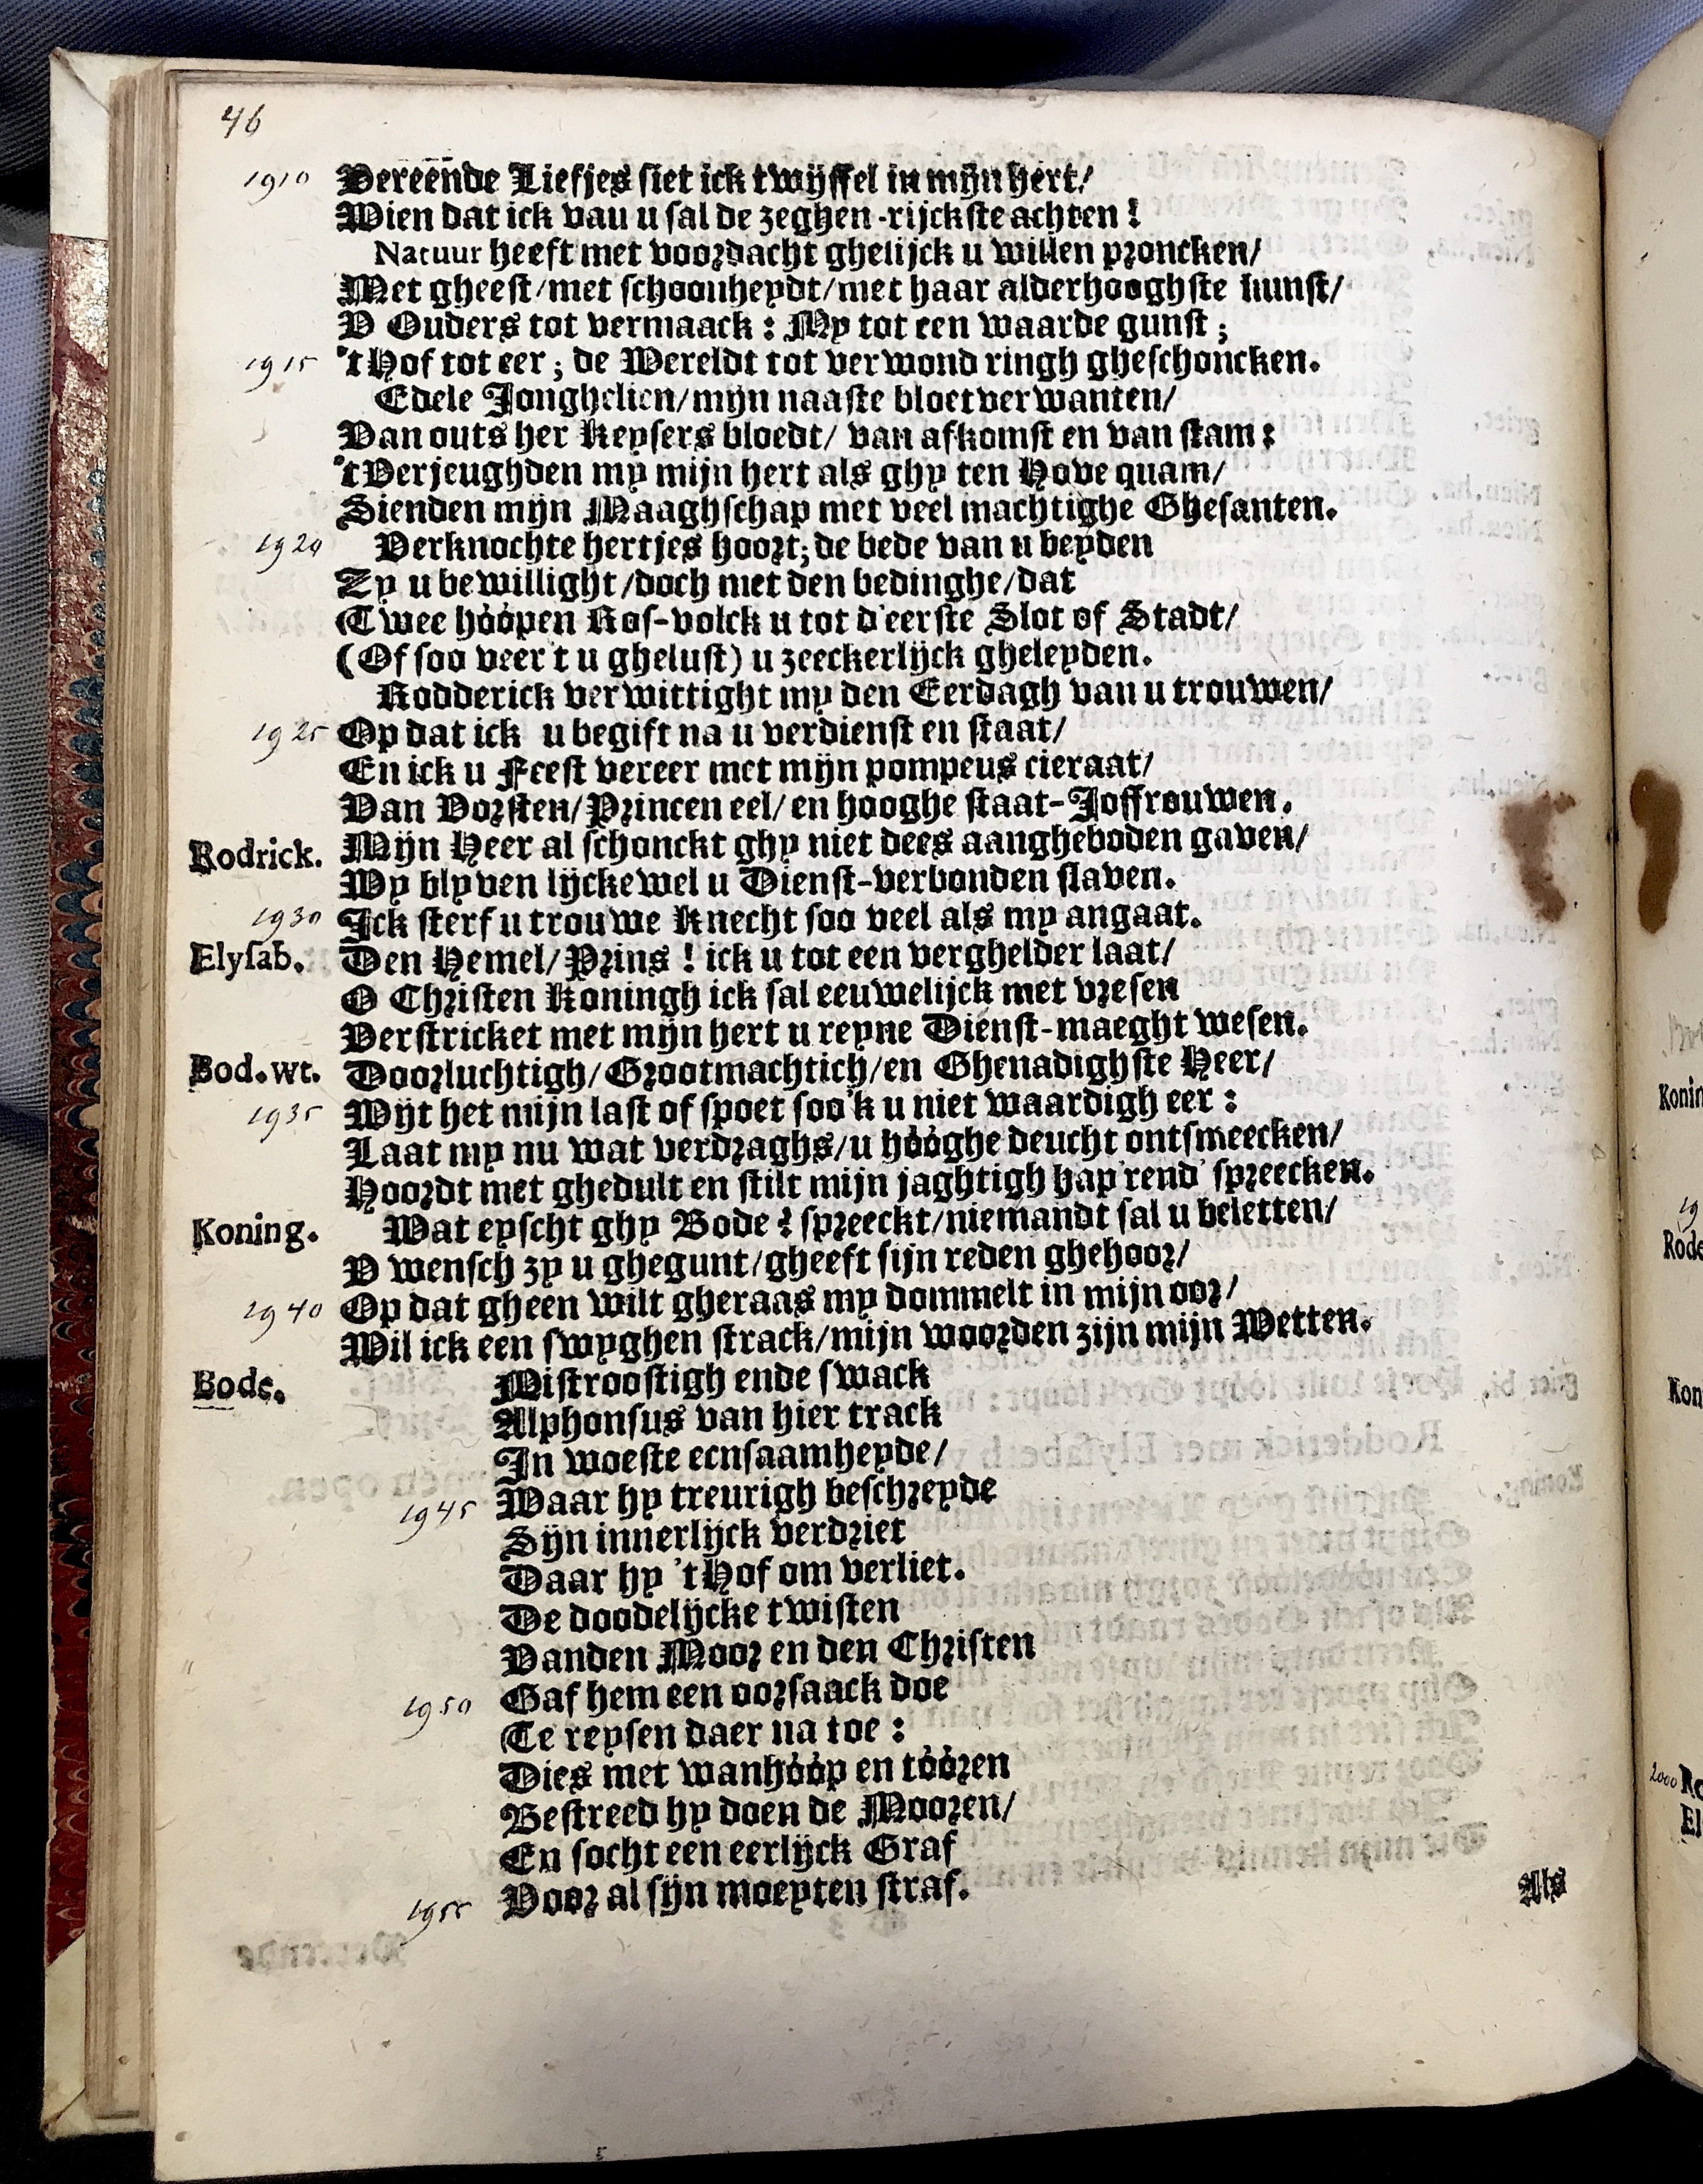 46
1910 Vereende Liefjes siet ick twijffel in mijn hert/
Wien dat ick van u sal de zeghen-rijckste achten!
Natuur heeft met voordacht ghelijck u willen proncken/
Met gheest/met schoonheydt/met haar alderhooghste kunst/
V Ouders tot vermaack: My tot een waarde gunst;
1915 't Hof tot eer; de Wereldt tot verwond'ringh gheschoncken.
Edele Jonghelien/mijn naaste bloetverwanten/
Van outs her Keysers bloedt/ van afkomst en van stam:
't Verjeughden my mijn hert als ghy ten Hove quam/
Sienden mijn Maaghschap met veel machtighe Ghesanten.
1920 Verknochte hertjes hoort; de bede van u beyden
Zy u bewillight/doch met den bedinghe/dat
Twee hóópen Ros-volck u tot d'eerste Slot of Stadt/
(Of soo veer 't u ghelust) u zeeckerlijck gheleyden.
Rodderick verwittight my den Eerdagh van u trouwen/
1925 Op dat ick u begift na u verdienst en staat/
En ick u Feest vereer met mijn pompeus cieraat/
Van Vorsten/Princen eel/ en hooghe staat-Joffrouwen.
Rodrick. Mijn Heer al schonckt ghy niet dees aangheboden gaven/
Wy blyven lijckewel u Dienst-verbonden slaven.
1930 Ick sterf u trouwe Knecht soo veel als my angaat.
Elysab. Den Hemel/Prins! ick u tot een verghelder laat/
O Christen Koningh ick sal eeuwelijck met vresen
Verstricket met mijn hert u reyne Dienst-maeght wesen.
Bod.wt. Doorluchtigh/Grootmachtich/en Ghenadighste Heer/
1935 Wijt het mijn last of spoet soo'k u niet waardigh eer:
Laat my nu wat verdraghs/u hóóghe deucht ontsmeecken/
Hoordt met ghedult en stilt mijn jaghtigh hap'rend' spreecken.
Koning. Wat eyscht ghy Bode? spreeckt/niemandt sal u beletten/
V wensch zy u ghegunt/gheeft sijn reden ghehoor/
1940 Op dat gheen wilt gheraas my dommelt in mijn oor/
Wil ick een swyghen strack/mijn woorden zijn mijn Wetten.
Bode. Mistroostigh ende swack
Alphonsus van hier track
In woeste eensaamheyde/
1945 Waar hy treurigh beschreyde
Sijn innerlijck verdriet
Daar hy 't Hof om verliet.
De doodelijcke twisten
Vanden Moor en den Christen
1950 Gaf hem een oorsaack doe
Te reysen daer na toe:
Dies met wanhóóp en tóóren
Bestreed hy doen de Mooren/
En socht een eerlijck Graf
1955 Voor al sijn moeyten straf.
Als
Konin
19
Rode
Kon
2000 Ro
El